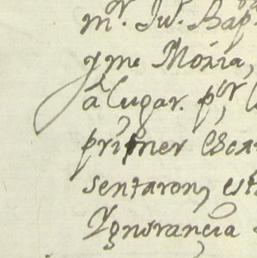 mr. Ju.º Bap
y me Moxia,
a lugar. por, l
primer Esca
sentaron, est
Ygnorancia